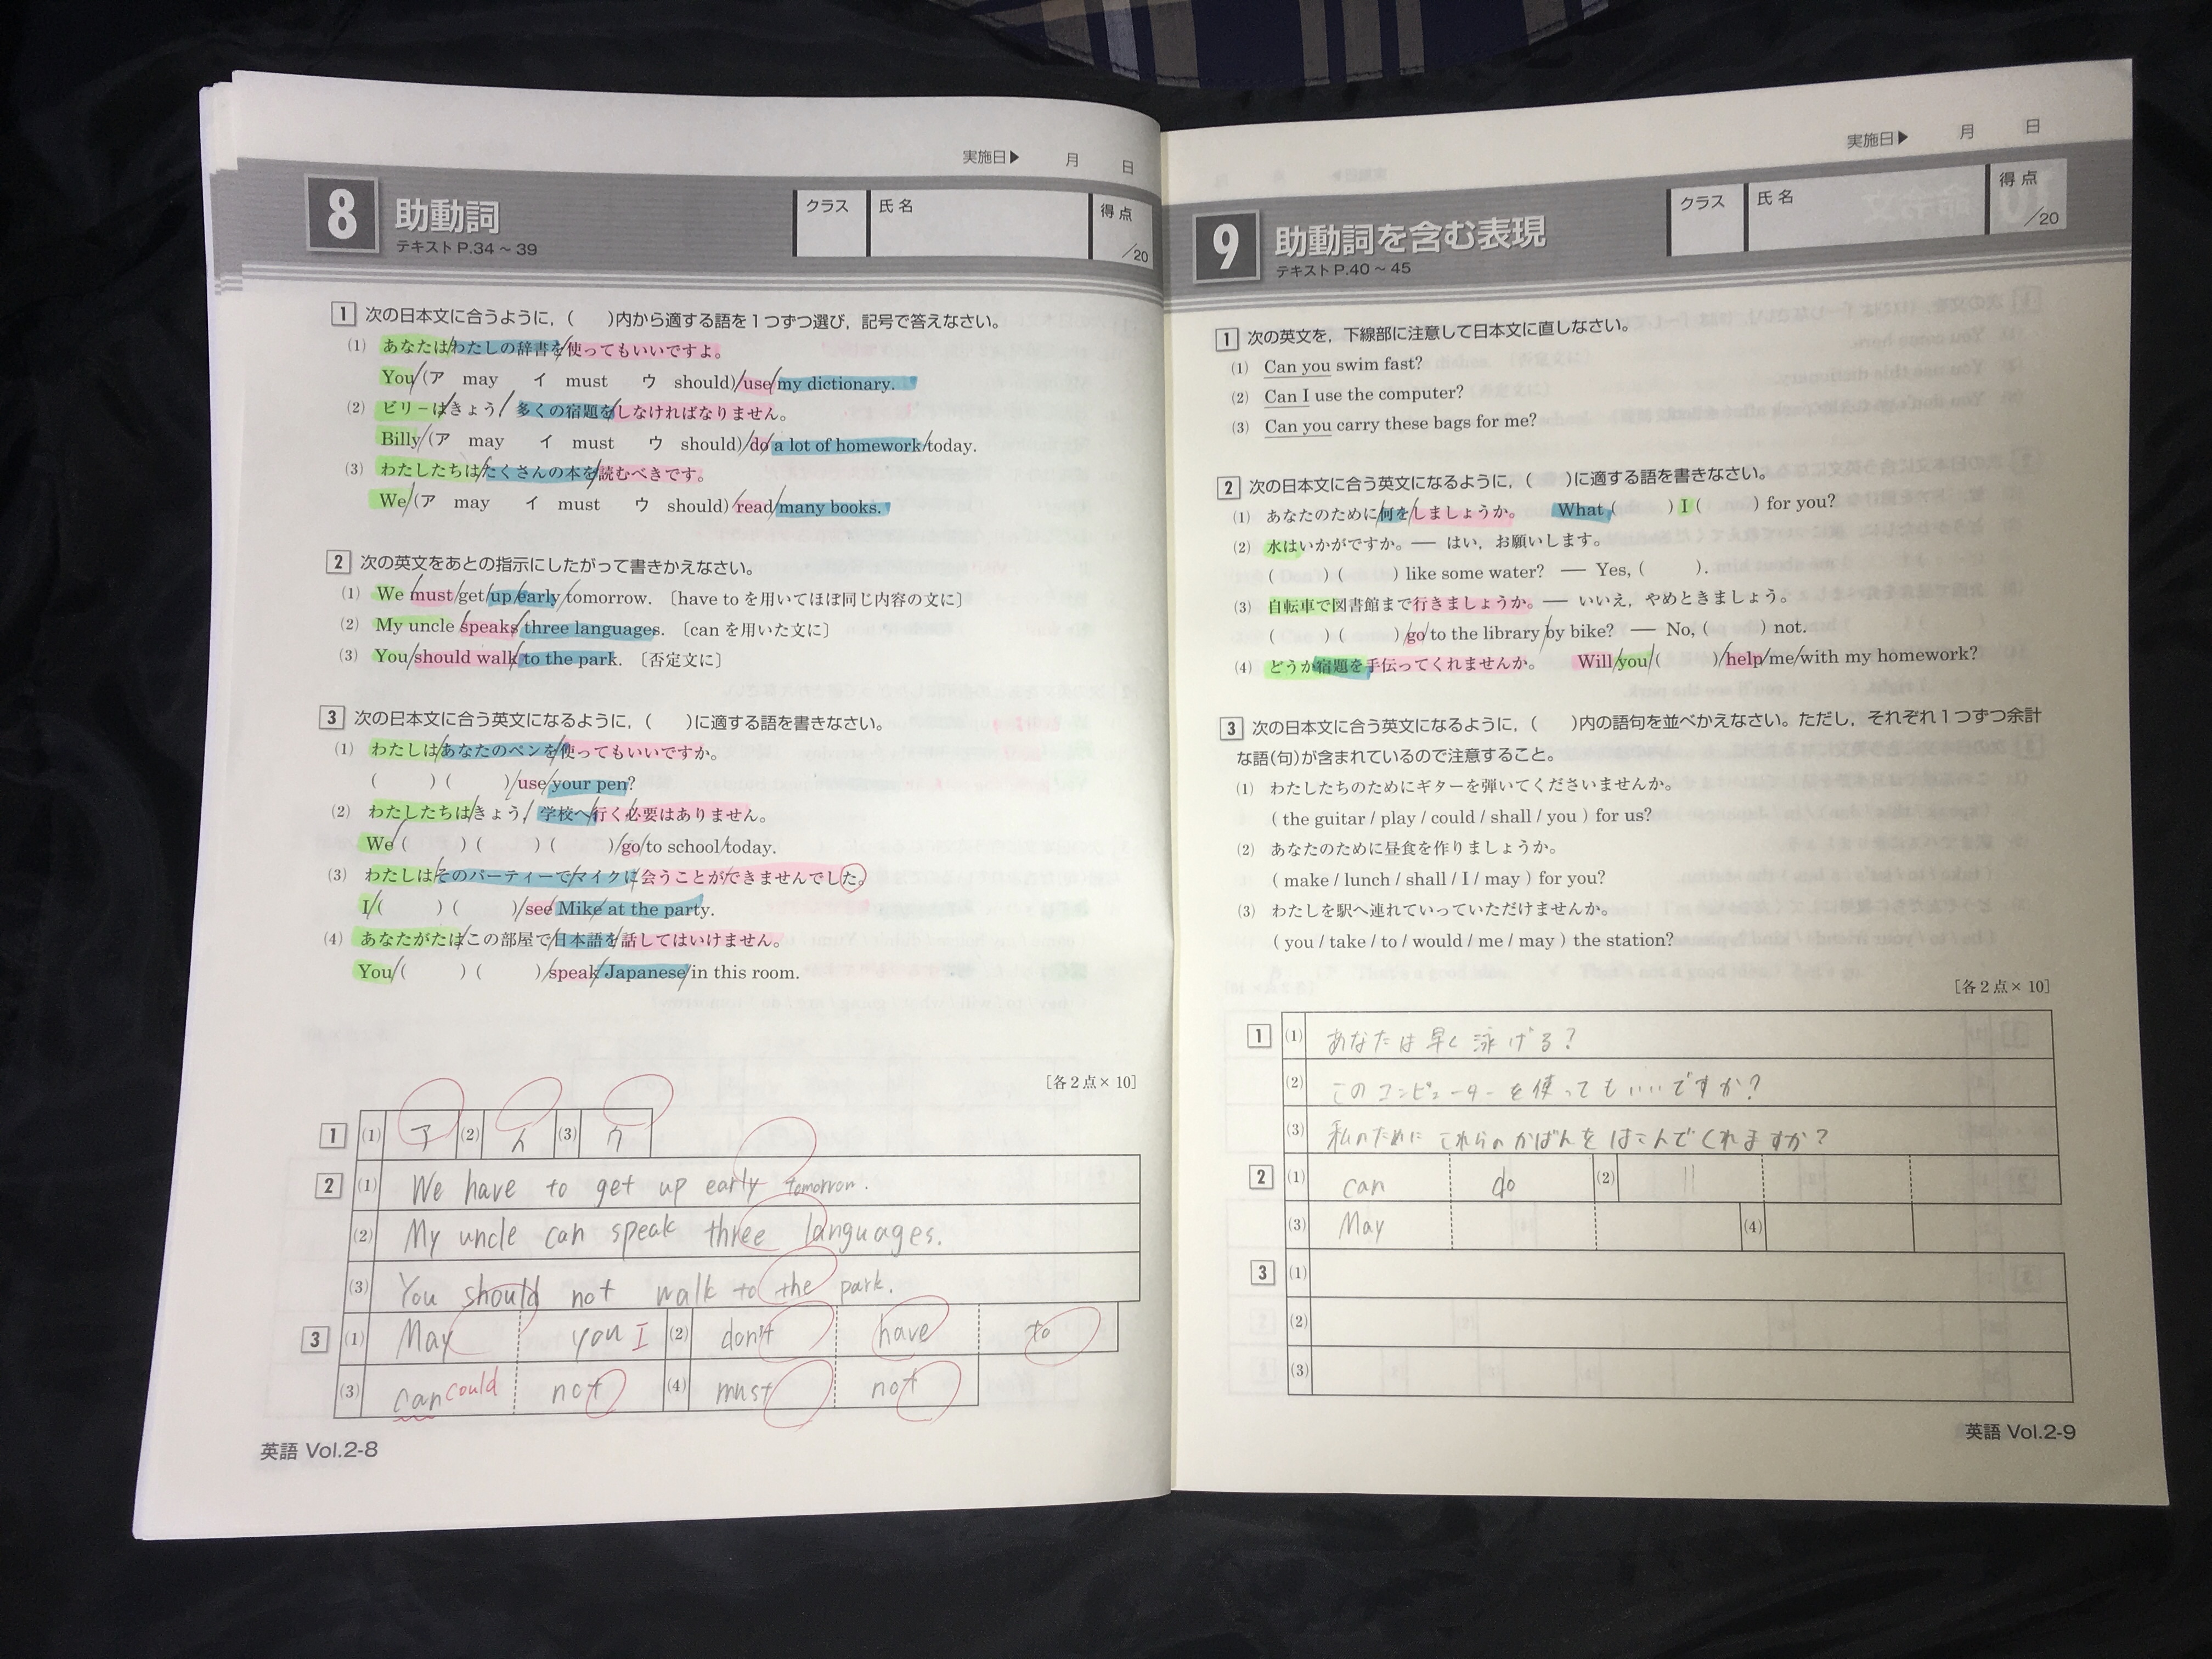 実施日▶ 月 日
8 助動詞
テキストP.34～39
クラス 氏名 得点 /20
1 次の日本文に合うように，( )内から適する語を1つずつ選び，記号で答えなさい。
(1) あなたはわたしの辞書を使ってもいいですよ。
You (ア may イ must ウ should) use my dictionary.
(2) ビリーはきょう，多くの宿題をしなければなりません。
Billy (ア may イ must ウ should) do a lot of homework today.
(3) わたしたちはたくさんの本を読むべきです。
We (ア may イ must ウ should) read many books.
2 次の英文をあとの指示にしたがって書きかえなさい。
(1) We must get up early tomorrow. 〔have to を用いてほぼ同じ内容の文に〕
(2) My uncle speaks three languages. 〔can を用いた文に〕
(3) You should walk to the park. 〔否定文に〕
3 次の日本文に合う英文になるように，( )に適する語を書きなさい。
(1) わたしはあなたのペンを使ってもいいですか。
( ) ( ) use your pen?
(2) わたしたちはきょう，学校へ行く必要はありません。
We ( ) ( ) ( ) go to school today.
(3) わたしはそのパーティーでマイクに会うことができませんでした。
I ( ) ( ) see Mike at the party.
(4) あなたがたはこの部屋で日本語を話してはいけません。
You ( ) ( ) speak Japanese in this room.
[各2点×10]
1 (1) ア (2) イ (3) ウ
2 (1) We have to get up early tomorrow.
(2) My uncle can speak three languages.
(3) You should not walk to the park.
3 (1) May you I (2) don't have to
(3) can could not (4) must not
英語 Vol.2-8
実施日▶ 月 日
9 助動詞を含む表現
テキストP.40～45
クラス 氏名 得点 /20
1 次の英文を，下線部に注意して日本文に直しなさい。
(1) Can you swim fast?
(2) Can I use the computer?
(3) Can you carry these bags for me?
2 次の日本文に合う英文になるように，( )に適する語を書きなさい。
(1) あなたのために何をしましょうか。 What ( ) I ( ) for you?
(2) 水はいかがですか。― はい，お願いします。
( ) ( ) like some water? ― Yes, ( ).
(3) 自転車で図書館まで行きましょうか。― いいえ，やめときましょう。
( ) ( ) go to the library by bike? ― No, ( ) not.
(4) どうか宿題を手伝ってくれませんか。 Will you ( ) help me with my homework?
3 次の日本文に合う英文になるように，( )内の語句を並べかえなさい。ただし，それぞれ1つずつ余計
な語(句)が含まれているので注意すること。
(1) わたしたちのためにギターを弾いてくださいませんか。
( the guitar / play / could / shall / you ) for us?
(2) あなたのために昼食を作りましょうか。
( make / lunch / shall / I / may ) for you?
(3) わたしを駅へ連れていっていただけませんか。
( you / take / to / would / me / may ) the station?
[各2点×10]
1 (1) あなたは早く泳げる?
(2) このコンピューターを使ってもいいですか?
(3) 私のためにこれらのかばんをはこんでくれますか?
2 (1) can do (2)
(3) May (4)
3 (1)
(2)
(3)
英語 Vol.2-9